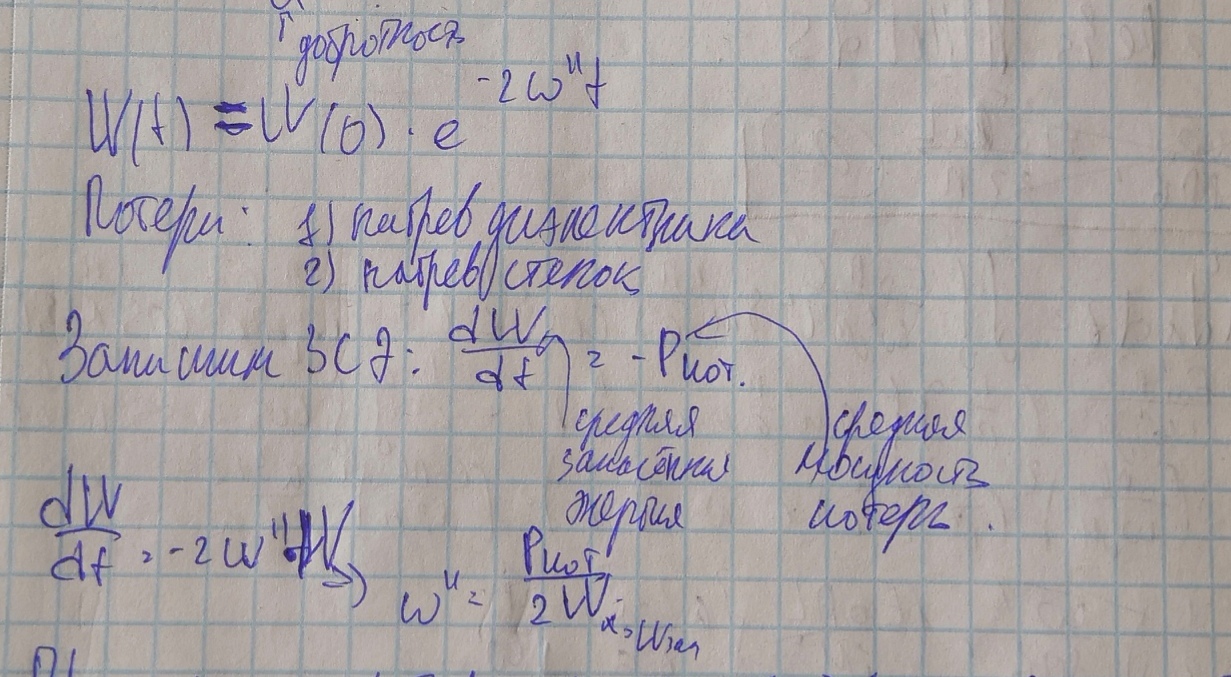 добротность
W(t) = W(0) · e^{-2ω''t}
Потери: 1) нагрев диэлектрика
2) нагрев стенок
Запишем ЗСЭ: dW/dt = - Pпот.
средняя запасённая энергия
средняя мощность потерь.
dW/dt = -2ω''W → ω'' = Pпот/2W
Wзап